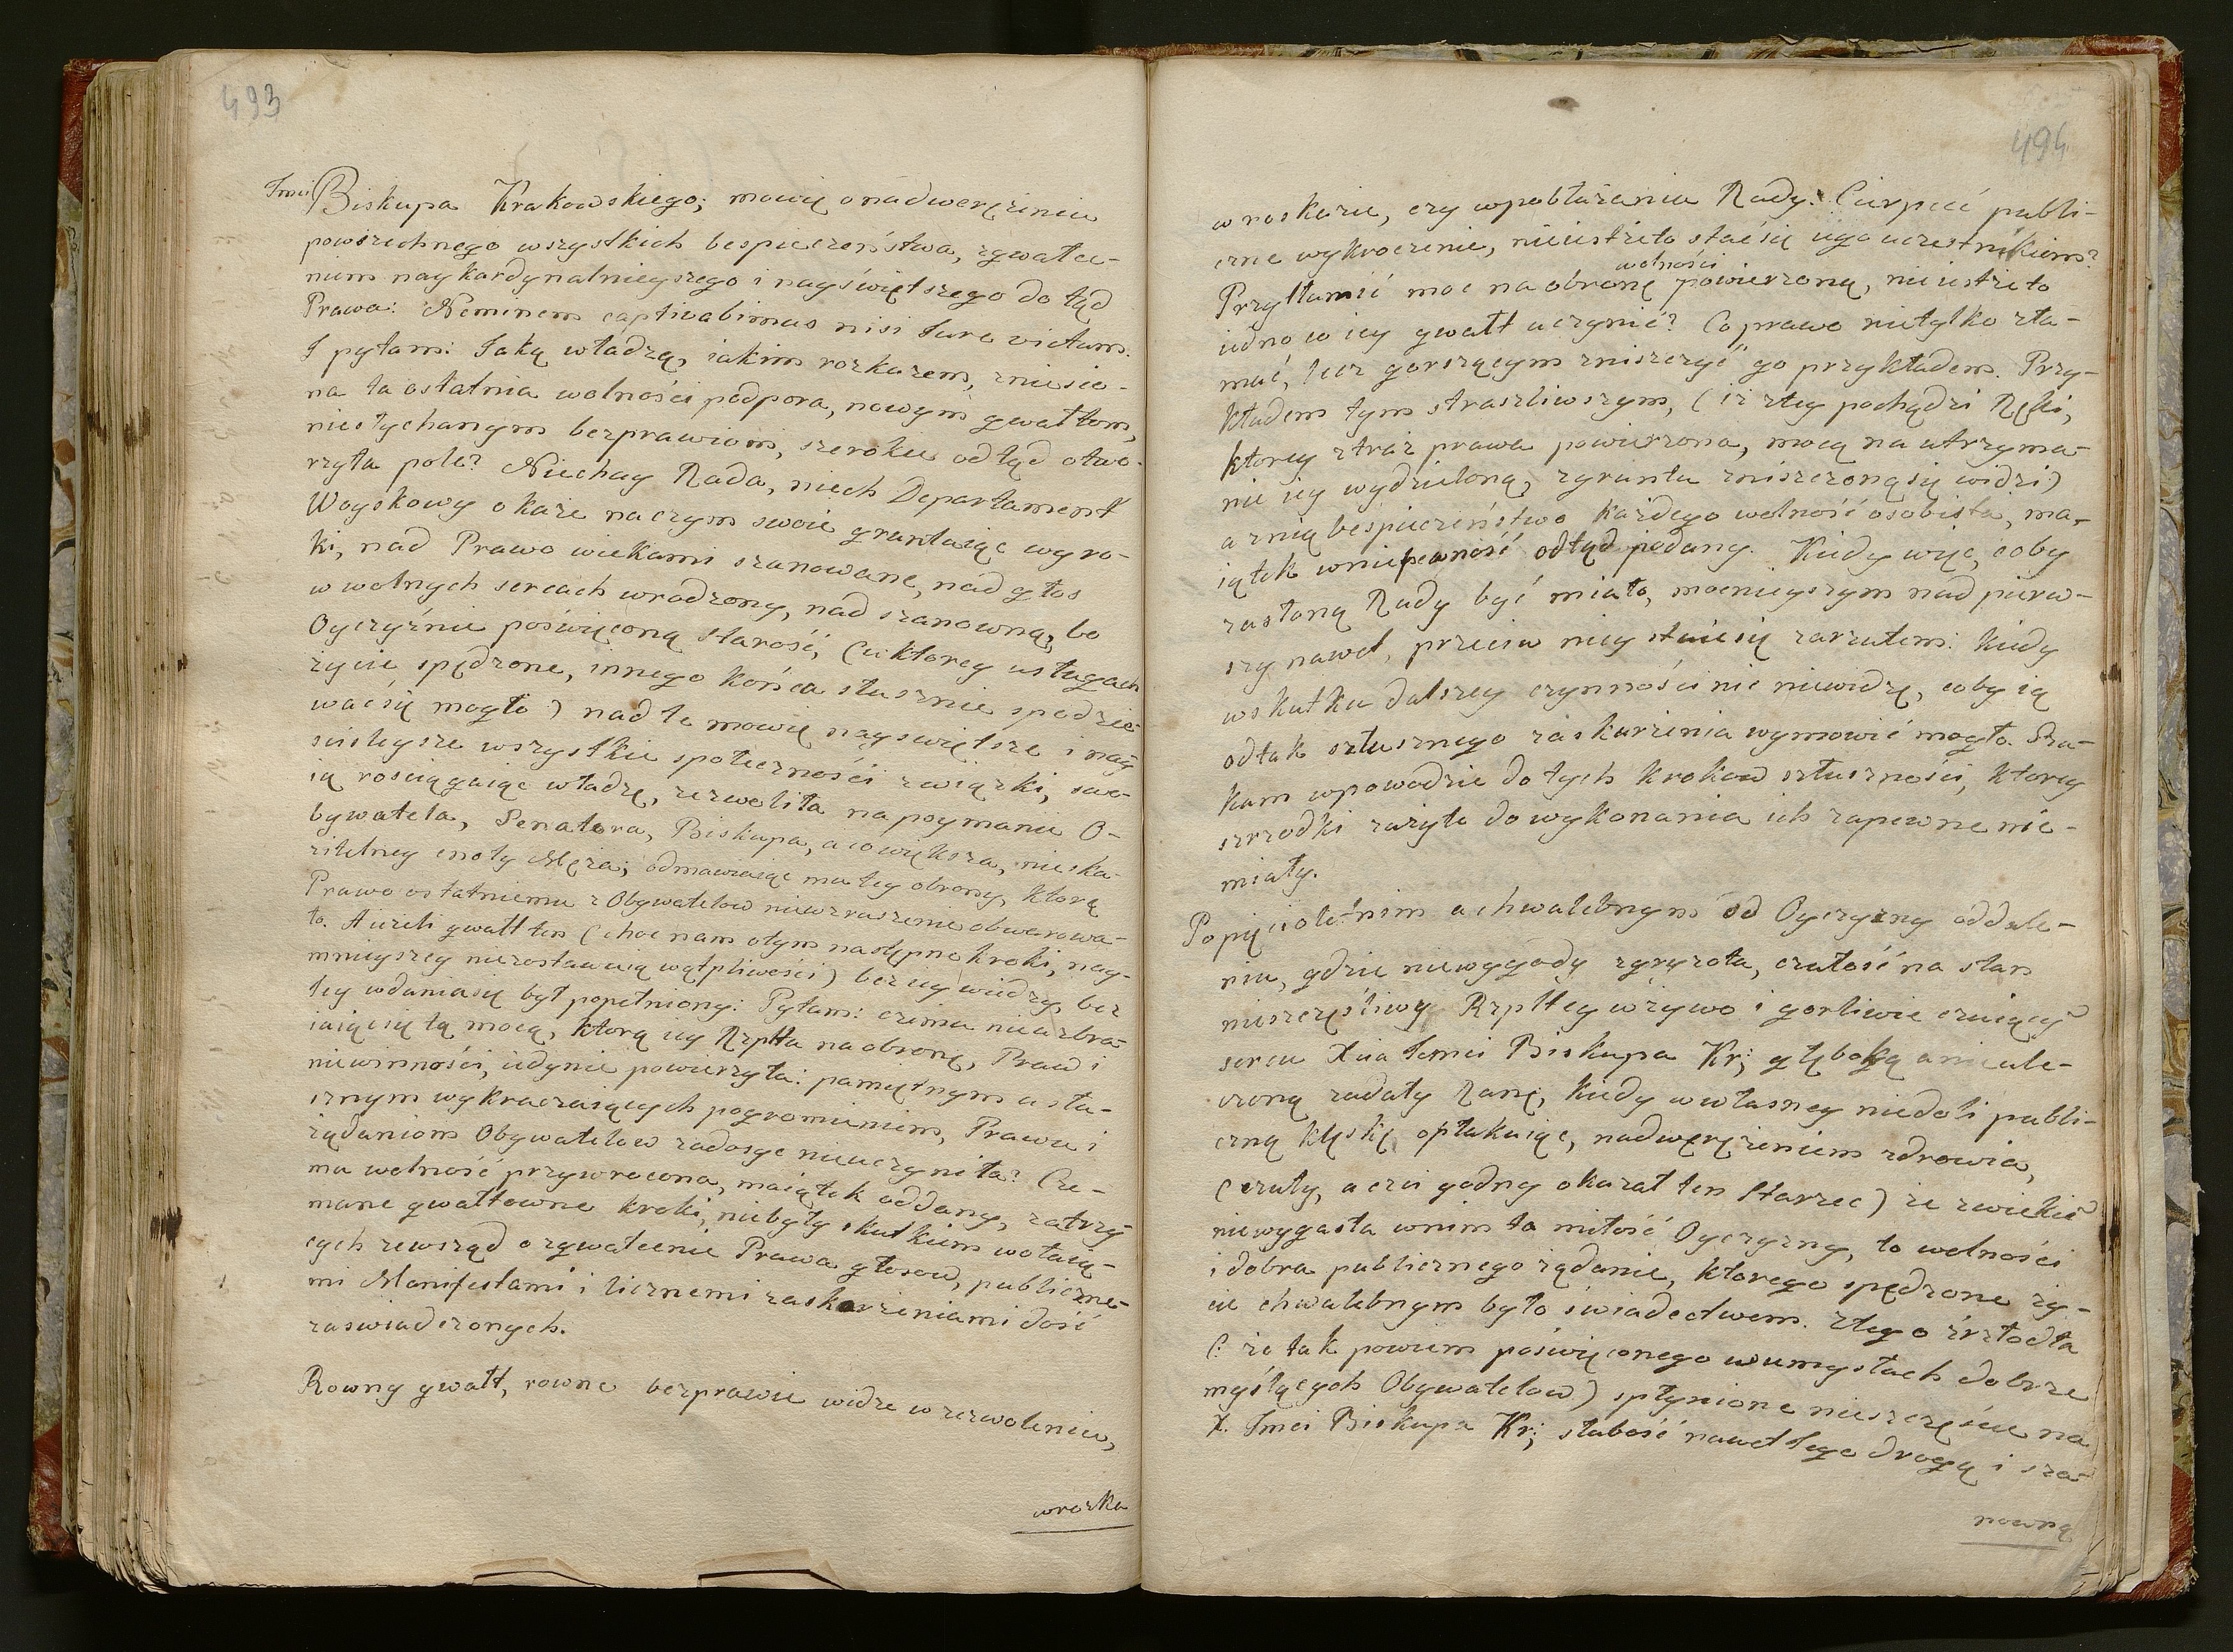 493
Jmci Biskupa Krakowskiego; mowię o nadwerężeniu
powszechnego wszystkich bespieczeństwa, zgwałce-
niem naykardynalnieyszego i nayświętszego do tąd
Prawa: Neminem captivabimus nisi Jure victum.
I pytam: Jaką władzą, iakim rozkazem, zniesio-
na ta ostatnia wolności podpora, nowym gwałtom,
niesłychanym bezprawiom, szerokie odtąd otwo-
rzyła pole? Niechay Rada, niech Departament
Woyskowy okaże na czym swoie gruntuiąc wyro-
ki, nad Prawo wiekami szanowane, nad głos
w wolnych sercach wrodzony, nad szanowną, bo
Oyczyźnie poświęconą starość, (w ktorey usługach
życie spędzone, innego końca słusznie spodzie-
wać się mogło) nad te mowię nayswiętsze i nay-
ściśleysze wszystkie społeczności związki, swo-
ią rościągaiąc władzę, zezwoliła na poymanie O-
bywatela, Senatora, Biskupa, a co większa, nieska-
zitelney cnoty Męża; odmawiaiąc mu tey obrony, ktorą
Prawo ostatniemu z Obywatelow niewzruszenie obwarowa-
ło. A ieżeli gwałt ten (choc nam o tym następne kroki, nay-
mnieyszey niezostawuią wątpliwości) bez iey wiedzy, bez
iey wdania się był popełniony: Pytam: czemu nieuzbra-
iaiąc się tą mocą, ktorą iey Rzplta na obronę, Praw i
niewinności, iedynie powierzyła: pamiętnym a sku-
cznym wykraczaiących pogromieniem, Prawu i
żądaniom Obywatelow zadosyć nieuczyniła? Cze-
mu wolność przywrocona, maiątek oddany, zatrzy-
mane gwałtowne kroki, niebyły skutkiem wołaią-
cych zewsząd o zgwałcenie Prawa głosow, publiczne-
mi Manifestami i licznemi zaskarżeniami dość
zaswiadczonych.
Rowny gwałt, rowne bezprawie widzę w zezwoleniu,
w rozka
494
w roskazie, czy w pobłażaniu Rady. Cierpieć publi-
czne wykroczenie, nieiestżeto stać się iego uczestnikiem?
Przytłumić moc na obronę wolności powierzoną, nieiestżeto
iedno co iey gwałt uczynić? Co prawo nietylko zła-
mać, lecz gorszącym zniszczyć go przykładem. Przy-
kładem tym straszliwszym, (iż z tey pochądzi Ręki,
ktorey straż prawa powierzona, mocą na utrzyma-
nie iey wydzieloną, zgruntu zniszczoną się widzi)
a z nią bespieczeństwo każdego wolność osobista, ma-
iątek w niepewność odtąd podany. Kiedy więc, coby
zasłoną Rady być miało, mocnieyszym nad pierw-
szy nawet, przeciw niey staie się zarzutem: kiedy
w skutku dalszey czynności nic niewidzę, coby ią
od tak słusznego zaskarżenia wymowić mogło. Szu-
kam w powodzie do tych krokow słuszności, ktorey
szrzodki zażyte do wykonania ich zapewne nie-
miały.
Po pięcioletnim a chwalebnym od Oyczyzny oddale-
niu, gdzie niewygody zgryzota, czułość na stan
nieszczęśliwy Rzpltey w żywo i gorliwie czuiącym
sercu Xcia Jmci Biskupa Kr: głęboką a nieule-
czoną zadały Ranę, kiedy w własney niedoli publi-
czną klęskę opłakuiąc, nadwerężeniem zdrowia,
(czuły, a czci godny okazał ten Starzec) że z wiekiem
niewygasła w nim ta miłość Oyczyzny, to wolności
i dobra publicznego żądanie, ktorego spędzone ży-
cie chwalebnym było świadectwem. z tego źrzodła
(: że tak powiem poświęconego w umysłach dobrze
myślących Obywatelow) spłynione nieszczęście na
X. Jmci Biskupa Kr: słabość nawet Jego drogą i sza-
nowną